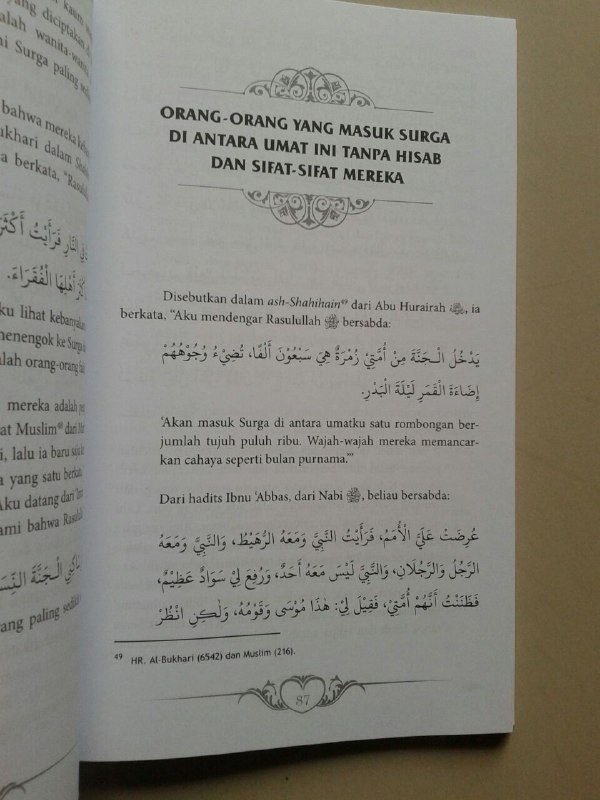 yang diciptakan
alah wanita-wanita
ni Surga paling
bahwa mereka
ukhari dalam
a berkata, "Rasulullah
فِي النَّارِ فَرَأَيْتُ أَكْثَرَ
أَهْلِهَا الْفُقَرَاءَ.
ku lihat kebanyakan
menengok ke Surga
alah orang-orang
mereka adalah
at Muslim dari
i, lalu ia baru saja
a yang satu berkata,
Aku datang dari
ami bahwa Rasulullah
الْجَنَّةِ
ang paling sedikit
ORANG-ORANG YANG MASUK SURGA
DI ANTARA UMAT INI TANPA HISAB
DAN SIFAT-SIFAT MEREKA
Disebutkan dalam ash-Shahihain⁴⁹ dari Abu Hurairah ﵁, ia
berkata, "Aku mendengar Rasulullah ﷺ bersabda:
يَدْخُلُ الْـجَنَّةَ مِنْ أُمَّتِيْ زُمْرَةٌ هِيَ سَبْعُوْنَ أَلْفًا، تُضِيْءُ وُجُوْهُهُمْ
إِضَاءَةَ الْقَمَرِ لَيْلَةَ الْبَدْرِ.
'Akan masuk Surga di antara umatku satu rombongan ber-
jumlah tujuh puluh ribu. Wajah-wajah mereka memancar-
kan cahaya seperti bulan purnama.'"
Dari hadits Ibnu 'Abbas, dari Nabi ﷺ, beliau bersabda:
عُرِضَتْ عَلَيَّ الْأُمَمُ، فَرَأَيْتُ النَّبِيَّ وَمَعَهُ الرُّهَيْطُ، وَالنَّبِيَّ وَمَعَهُ
الرَّجُلُ وَالرَّجُلَانِ، وَالنَّبِيَّ لَيْسَ مَعَهُ أَحَدٌ، وَرُفِعَ لِيْ سَوَادٌ عَظِيْمٌ،
فَظَنَنْتُ أَنَّهُمْ أُمَّتِيْ، فَقِيْلَ لِيْ: هٰذَا مُوْسَى وَقَوْمُهُ، وَلٰكِنِ انْظُرْ
49 HR. Al-Bukhari (6542) dan Muslim (216).
87